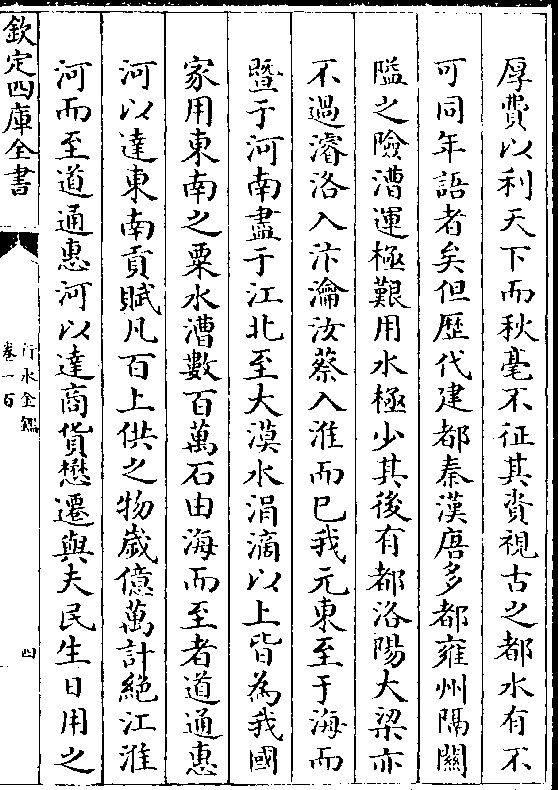 厚費以利天下而秋毫不征其貲視古之都水有不
可同年語者矣但歴代建都秦漢唐多都雍州隔關
隘之險漕運極艱用水極少其後有都洛陽大梁亦
不過濬洛入汴瀹汝蔡入淮而已我元東至于海而
暨于河南盡于江北至大漠水涓滴以上皆為我國
家用東南之粟水漕數百萬石由海而至者道通惠
河以達東南貢賦凡百上供之物歳億萬計絶江淮
河而至道通惠河以達商貨懋遷與夫民生日用之
欽定四庫全書
行水金鑑
卷一百
四